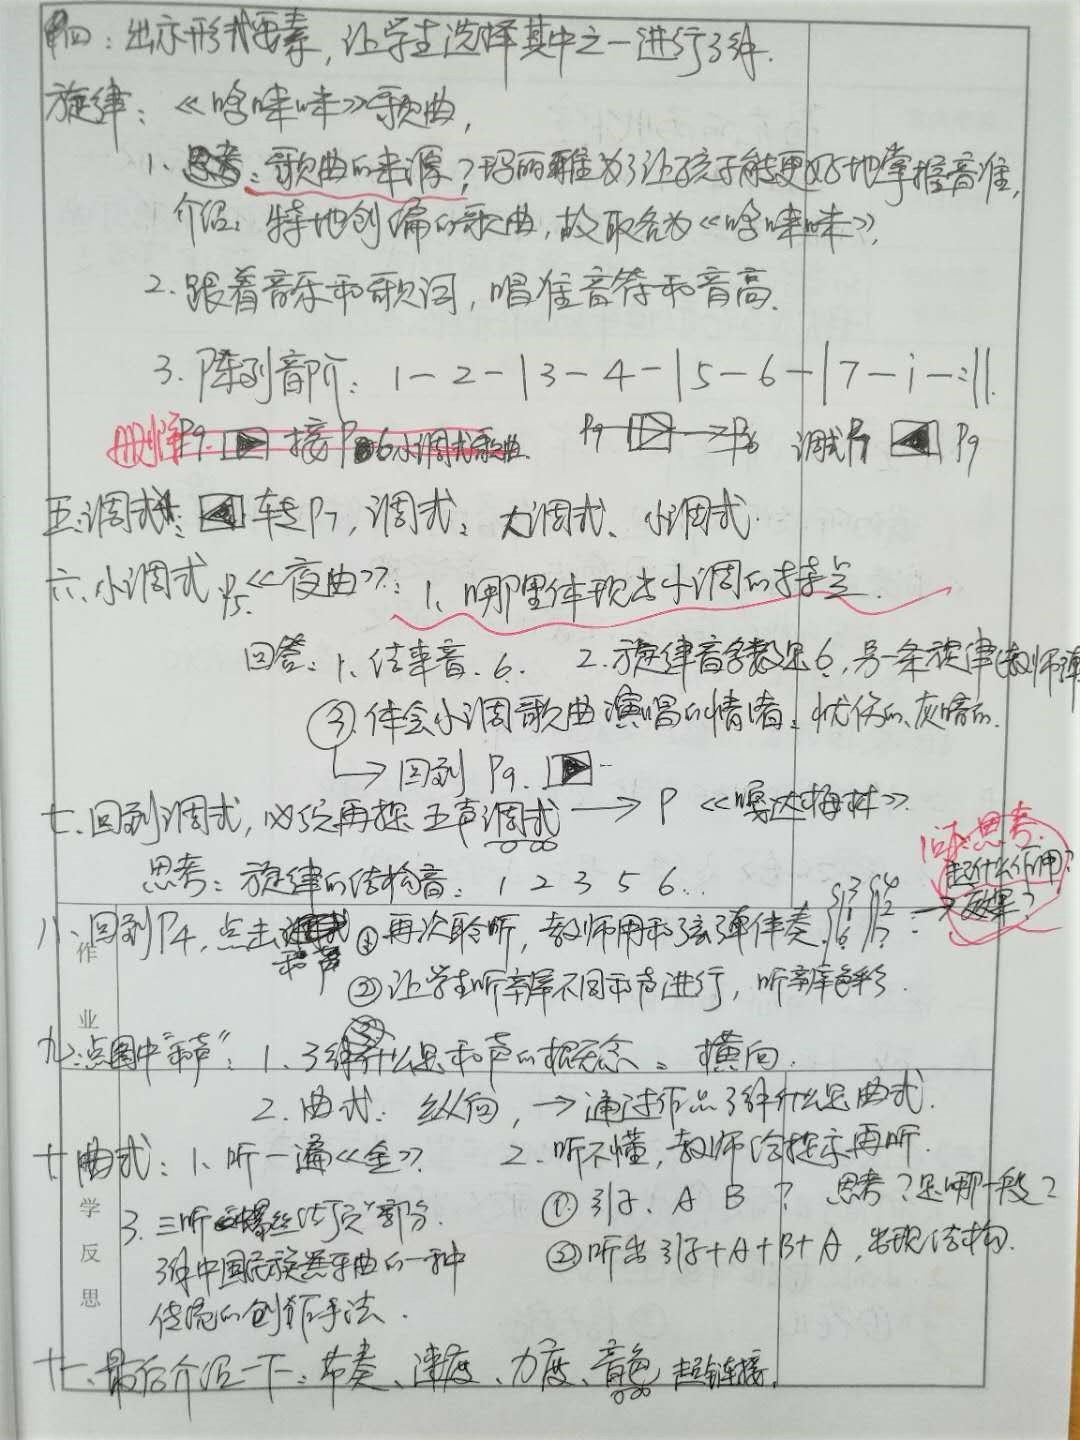 四：出示形式要素，让学生选择其中之一进行了解.
旋律：《哆唻咪》歌曲，
1. 思考：歌曲的来源？玛丽雅为了让孩子能更好地掌握音准，
介绍：特地创编的歌曲，故取名为《哆唻咪》，
2. 跟着音乐和歌词，唱准音符和音高.
3. 陈列音阶：1 — 2 — | 3 — 4 — | 5 — 6 — | 7 — i — :||.
删掉P9. ▶ 接P6小调式歌曲. P9 ▷ → P6 调式P7 ◀ P9
五.调式：◀ 转P7，调式：大调式、小调式.
六、小调式P5.《夜曲》：1、哪里体现出小调的特点.
回答：1. 结束音.6. 2. 旋律音多数是6，另一条旋律(教师弹
③.体会小调歌曲演唱的情绪：忧伤的、灰暗的.
→ 回到 P9. ▶
七.回到调式，必须再探五声调式 → P 《嘎达梅林》.
1问：思考.
起什么作用？
效果？
思考：旋律的结构音：1 2 3 5 6..
八、回到P4，点击和声 ①再次聆听，教师用和弦弹伴奏.
作
②让学生听辨不同和声进行，听辨色彩.
业
九：点图中“和声”：1. 了解什么是和声的概念：横向.
2. 曲式：纵向，→ 通过作品了解什么是曲式.
十.曲式：1. 听一遍《金》. 2. 听不懂，教师给提示再听.
学
① 引子、A B ？ 思考？是哪一段？
3. 三听“螺丝结顶”部分.
反
②听出引子+A+B+A，出现结构.
了解中国民族器乐曲的一种
思
传统的创作手法.
十一、最后介绍一下：节奏、速度、力度、音色 超链接.